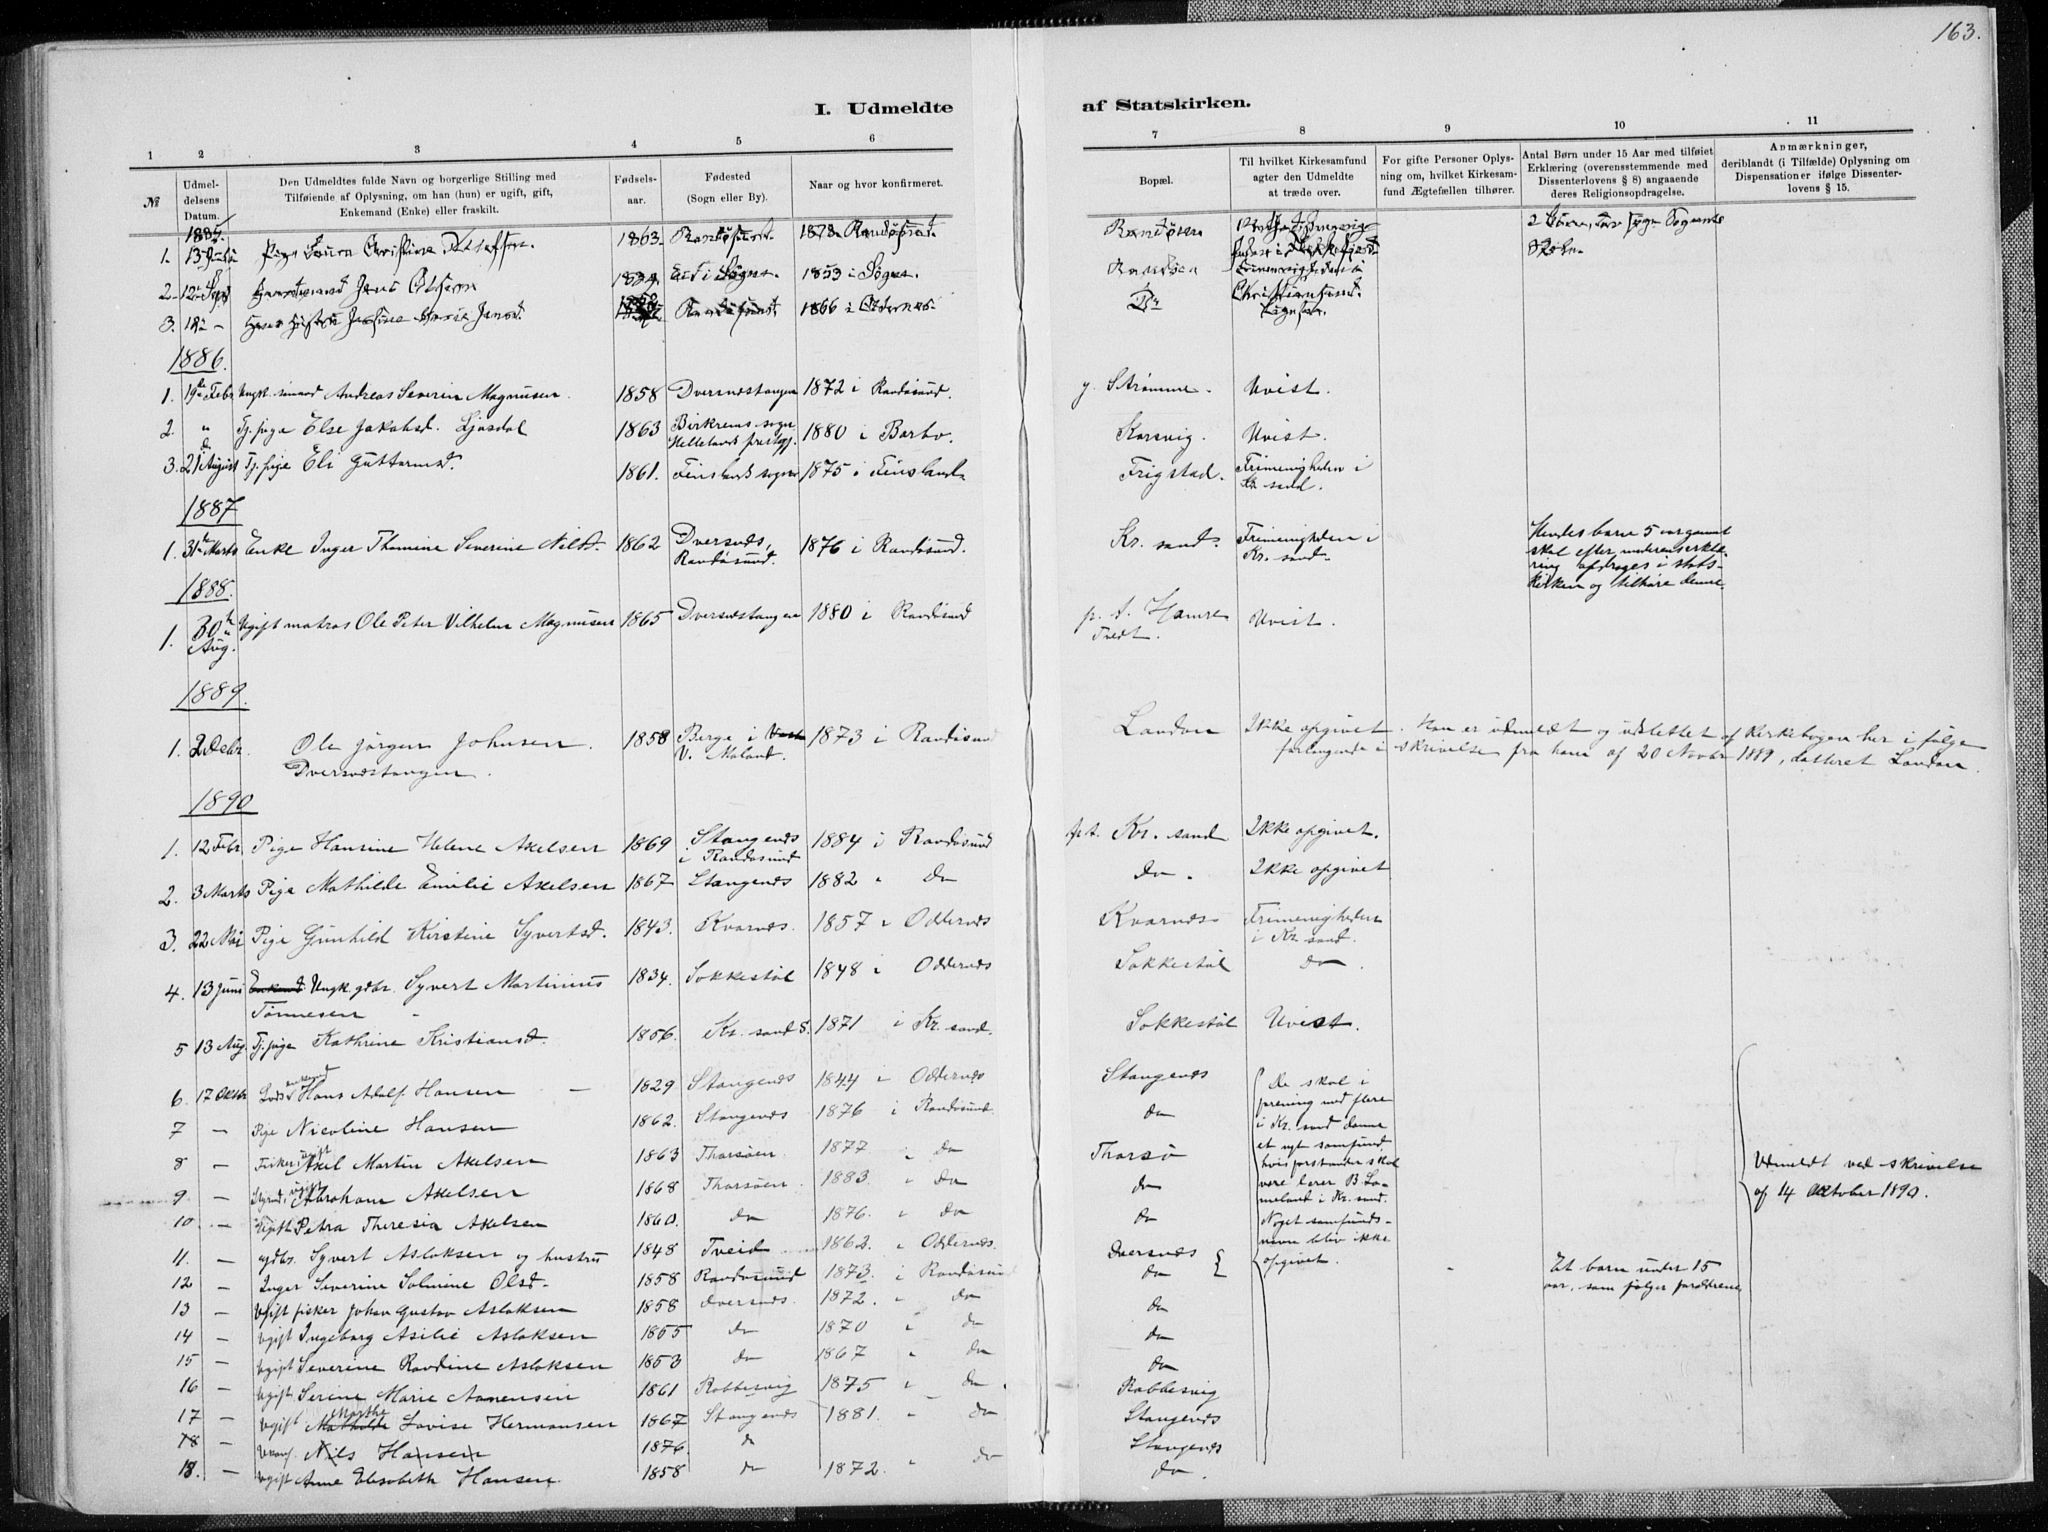 163.
I. Udmeldte af Statskirken.
1 2 3 4 5 6 7 8 9 10 11
№
Udmel-
delsens
Datum.
Den Udmeldtes fulde Navn og borgerlige Stilling med
Tilføiende af Oplysning, om han (hun) er ugift, gift,
Enkemand (Enke) eller fraskilt.
Fødsels-
aar.
Fødested
(Sogn eller By).
Naar og hvor konfirmeret.
Bopæl.
Til hvilket Kirkesamfund
agter den Udmeldte
at træde over.
For gifte Personer Oplys-
ning om, hvilket Kirkesam-
fund Ægtefællen tilhører.
Antal Børn under 15 Aar med tilføiet
Erklæring (overensstemmende med
Dissenterlovens § 8) angaaende
deres Religionsopdragelse.
Anmærkninger,
deriblandt (i Tilfælde) Oplysning om
Dispensationer ifølge Dissenter-
lovens § 15.
1. Pige Laura Christine 1863. Randøsund. 1878 Randøsund. Randøen
2. 12 Sept Jens 1834 i Søgne. 1853 i Søgne. Randøen
3. 12 — Marie Jensd. Randøsund 1866 i Oddernes. Do
1886.
1. 19de Febr. Ungk. sømand Andreas Severin Magnusen. 1858 Dversnæstangen 1872 i Randøsund. y. Strømme. Uvist.
2. " Tj. pige Else Jakobsd. Ljosdal 1863 Birkrems sogn 1880 i Barbo. Korsvig. Uvist.
Hellelands prestgj.
3. 21 August Tj. pige Eli Guttormsd. 1861. Finslands sogn 1875 i Finsland Frigstad. Frimenigheden i
Kr. sand.
1887
1. 31te Marts Enke Inger Thomine Severine Nilsd. 1862 Dversnæs, 1876 i Randøsund. Kr. sand. Frimenigheden i Hendes barn 5 aar gammt
Randøsund. Kr. sand. skal efter moderens erklæ-
ring opdrages i stats-
kirken og tilhøre denne.
1888.
1. 30te Aug. Ugift matros Ole Peter Vilhelm Magnusen 1865 Dversnæstangen 1880 i Randøsund p. t. Hamre Uvist.
Tvedt.
1889.
1. 2 Debr. Ole Jørgen Johnsen. 1858 Berge i 1873 i Randøsund London Ikke opgivet. Han er udmeldt og udslettet af Kirkebogen her i følge
Dversnæstangen. V. Moland. forlangende i skrivelse fra ham af 20 Novbr 1889, datteret London.
1890
1. 12 Febr. Pige Hansine Helene Axelsen 1869 Stangenæs 1884 i Randøsund p.t. Kr. sand Ikke opgivet.
i Randøsund
2. 3 Marts Pige Mathilde Emilie Axelsen 1867 Stangenæs 1882 " Do Do. Ikke opgivet
3. 22 Mai Pige Gunhild Kirstine Syvertsd. 1843. Kvarnæs. 1857 i Oddernæs Kvarnæs Frimenigheden
i Kr. sand.
4. 13 Juni Enkemd Ungk. gdbr. Syvert Martinius 1834. Sokkestøl 1848 i Oddernæs Sokkestøl do
Tønnesen
5 13 Aug. Tj. pige Kathrine Kristiansd. 1856. Kr. sand S. 1871 i Kr. sand. Sokkestøl Uvist.
6. 17 Oktbr. Lods enkemd Hans Adolf Hansen 1829 Stangenæs 1844 i Oddernæs Stangenæs De skal i
7 — Pige Nicoline Hansen 1862. Stangenæs 1876 i Randøsund do forening med flere
i Kr. sand danne
8 — Fisker, ugift Axel Martin Axelsen 1863 Tharsøen 1877 " do Tharsø et nyt samfund,
hvis forstander skal Udmeldt ved skrivelse
9 — Styrmd. ugift Abraham Axelsen 1868 Tharsøen. 1883. " do do være lærer B. Lo- af 14 Oktober 1890.
meland i Kr. sand.
10. — Ugift Petra Theresia Axelsen 1860. do 1876. " do do Noget samfunds-
11. — gdbr. Syvert Aslaksen og hustru 1848 Tveid 1862. " Oddernæs. Dversnæs navn blev ikke
12 — Inger Severine Salmine Olsd. 1858 Randøsund 1873. i Randøsund do opgivet. Et barn under 15
aar, som følger forældrene
13 — Ugift fisker Johan Gustav Aslaksen 1858 Dversnæs. 1872. " do do
14 — Ugift Ingeborg Asilie Aslaksen 1855 do 1870 " do do
15 — Ugift Severine Randine Aslaksen 1853 do 1867 " do do
16 — Ugift Serine Marie Aanensen 1861 Robbesvig 1875 " do. Robbesvig
17 — Ugift Mathilde Marthe Lovise Hermansen 1867 Stangenæs 1881. " do Stangenæs
18 — Ukonf. Nils Hansen 1876. do Stangenæs
18. — Ugift Anne Elisabeth Hansen. 1858 do 1872. " do do.